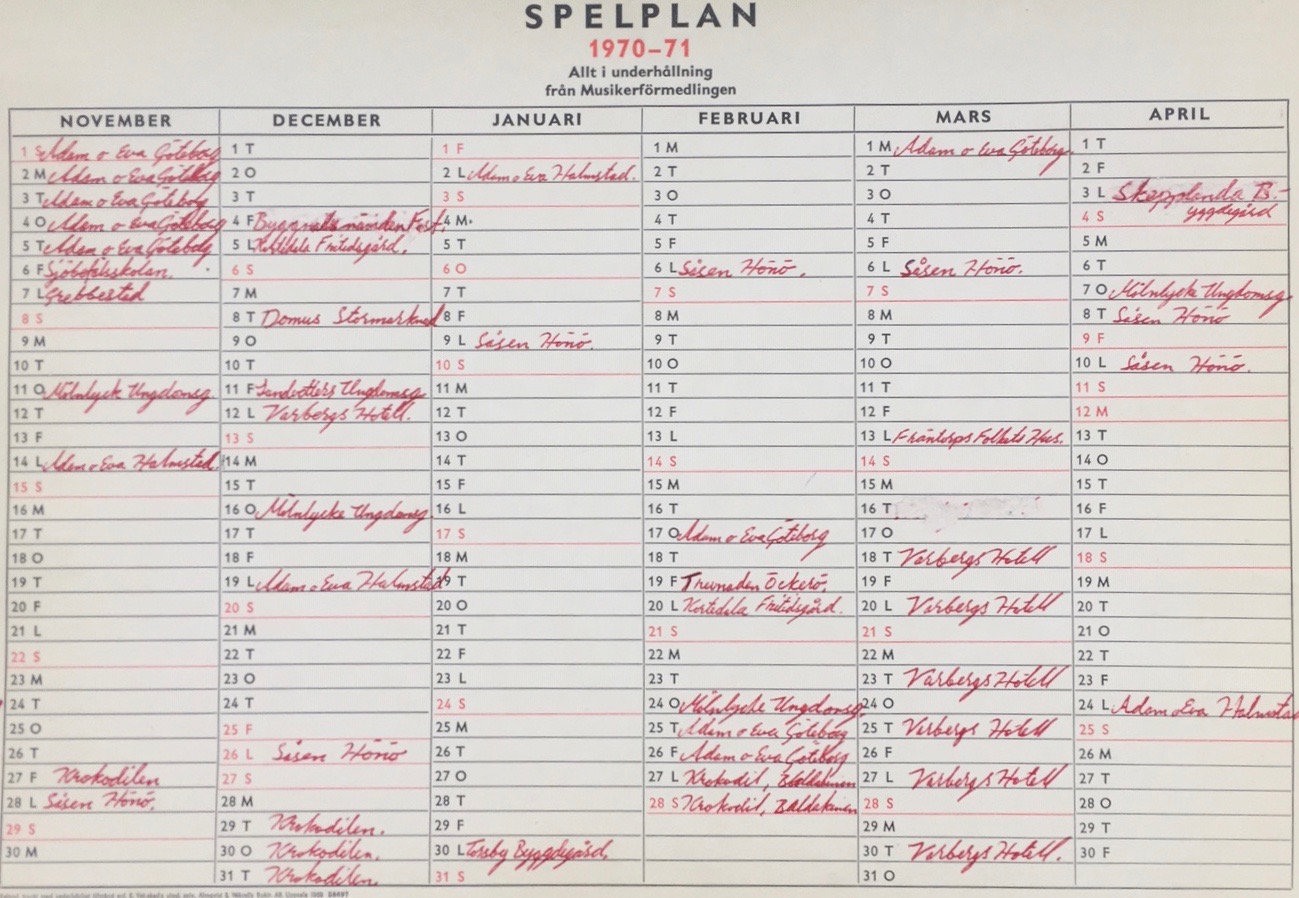 SPELPLAN
1970–71
Allt i underhållning
från Musikerförmedlingen
NOVEMBER
1 S Adam o Eva Göteborg
2 M Adam o Eva Göteborg
3 T Adam o Eva Göteborg
4 O Adam o Eva Göteborg
5 T Adam o Eva Göteborg
6 F Sjöbefälsskolan.
7 L Grebbestad
8 S
9 M
10 T
11 O Mölnlyck Ungdomsg.
12 T
13 F
14 L Adam o Eva Halmstad
15 S
16 M
17 T
18 O
19 T
20 F
21 L
22 S
23 M
24 T
25 O
26 T
27 F Krokodilen
28 L Såsen Hönö.
29 S
30 M
DECEMBER
1 T
2 O
3 T
4 F Byggnadsnämnden Fest.
5 L Kortedala Fritidsgård.
6 S
7 M
8 T Domus Stormarknad
9 O
10 T
11 F Ungdomsg.
12 L Varbergs Hotell.
13 S
14 M
15 T
16 O Mölnlycke Ungdomsg.
17 T
18 F
19 L Adam o Eva Halmstad
20 S
21 M
22 T
23 O
24 T
25 F
26 L Såsen Hönö
27 S
28 M
29 T Krokodilen.
30 O Krokodilen.
31 T Krokodilen.
JANUARI
1 F
2 L Adam o Eva Halmstad.
3 S
4 M
5 T
6 O
7 T
8 F
9 L Såsen Hönö.
10 S
11 M
12 T
13 O
14 T
15 F
16 L
17 S
18 M
19 T
20 O
21 T
22 F
23 L
24 S
25 M
26 T
27 O
28 T
29 F
30 L Torsby Byggdegård.
31 S
FEBRUARI
1 M
2 T
3 O
4 T
5 F
6 L Såsen Hönö.
7 S
8 M
9 T
10 O
11 T
12 F
13 L
14 S
15 M
16 T
17 O Adam o Eva Göteborg
18 T
19 F Trumaden Öckerö.
20 L Kortedala Fritidsgård.
21 S
22 M
23 T
24 O Mölnlycke Ungdomsg.
25 T Adam o Eva Göteborg
26 F Adam o Eva Göteborg
27 L Krokodil, Baldakinen
28 S Krokodil, Baldakinen
MARS
1 M Adam o Eva Göteborg
2 T
3 O
4 T
5 F
6 L Såsen Hönö.
7 S
8 M
9 T
10 O
11 T
12 F
13 L Fräntorps Folkets Hus.
14 S
15 M
16 T
17 O
18 T Varbergs Hotell
19 F
20 L Varbergs Hotell
21 S
22 M
23 T Varbergs Hotell
24 O
25 T Varbergs Hotell
26 F
27 L Varbergs Hotell
28 S
29 M
30 T Varbergs Hotell.
31 O
APRIL
1 T
2 F
3 L Skepplanda B-
4 S yggdegård
5 M
6 T
7 O Mölnlycke Ungdomsg
8 T Såsen Hönö
9 F
10 L Såsen Hönö.
11 S
12 M
13 T
14 O
15 T
16 F
17 L
18 S
19 M
20 T
21 O
22 T
23 F
24 L Adam o Eva Halmstad
25 S
26 M
27 T
28 O
29 T
30 F